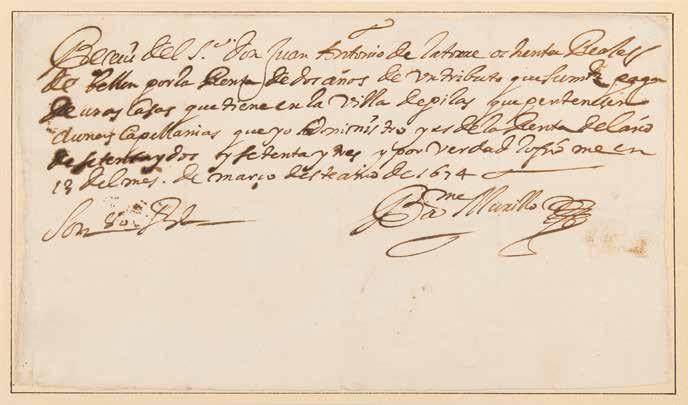 Recivi del S.or don Juan Antonio de la torre ochenta Reales
de bellon por la Renta de dos años de un tributo que su md paga
de unas casas que tiene en la Villa de pilas que pertenecen
a unas Capellanias que yo Administro y es de la Renta del año
de setenta y dos y setenta y tres y por verdad lo firmé en
13 del mes. de março deste año de 1674
Son 80 Rs
Bar.me Murillo